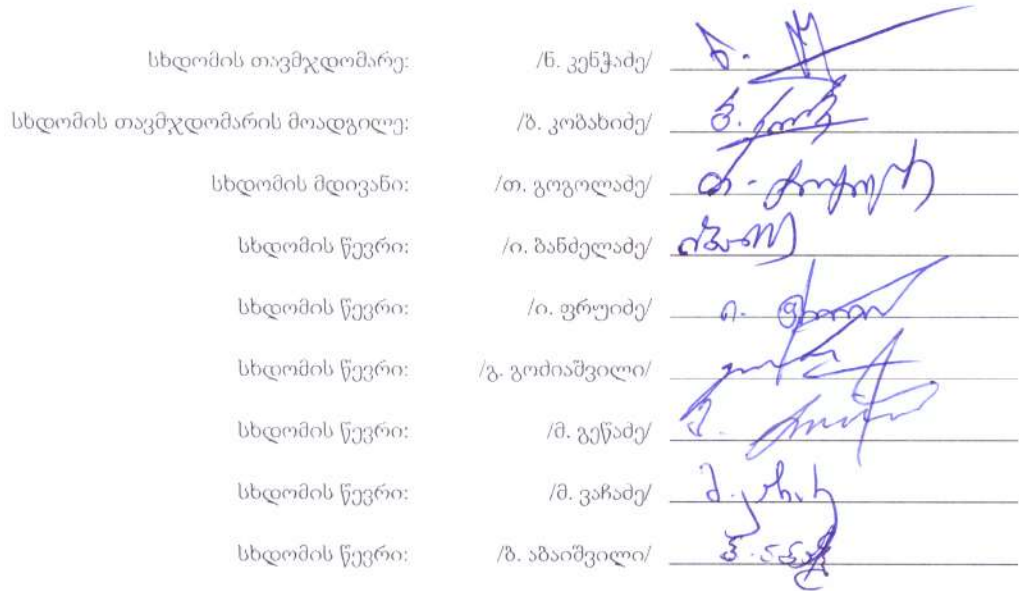 სხდომის თავმჯდომარე: /ნ. კენჭაძე/
სხდომის თავმჯდომარის მოადგილე: /ბ. კობახიძე/
სხდომის მდივანი: /თ. გოგოლაძე/
სხდომის წევრი: /ი. ბანძელაძე/
სხდომის წევრი: /ი. ფრუიძე/
სხდომის წევრი: /გ. გოძიაშვილი/
სხდომის წევრი: /მ. გეწაძე/
სხდომის წევრი: /მ. ვაჩაძე/
სხდომის წევრი: /ბ. აბაიშვილი/